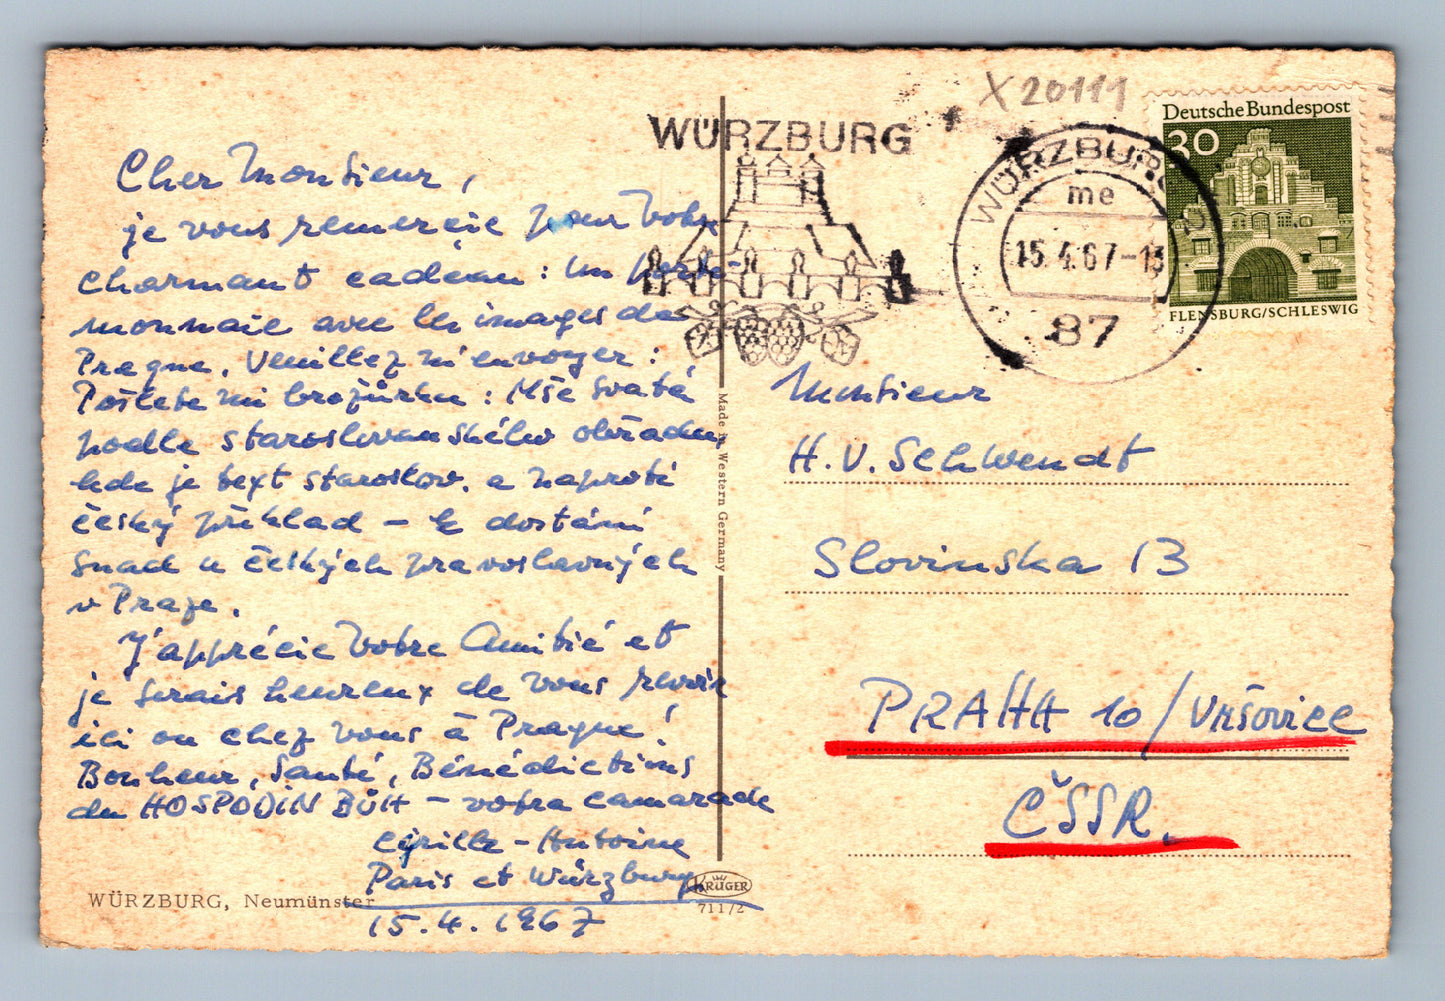 Cher Monsieur,
je vous remercie pour Votre
charmant cadeau: un porte-
monnaie avec les images de
Prague. Veuillez m'envoyer:
Pošlete mi brožúrku: Mše svatá
podle staroslovanského obřadu,
kde je text staroslov. a naproti
český překlad – k dostání
snad u českých pravoslavných
v Praze.
J'apprécie Votre Amitié et
je serais heureux de Vous revoir
ici ou chez Vous à Prague!
Bonheur, Santé, Bénédictions
du HOSPODIN BŮH – votre camarade
Cyrille-Antoine
Paris et Würzburg
15.4.1967
WÜRZBURG, Neumünster
KRÜGER
711/2
Made in Western Germany
X 20111
WÜRZBURG
WÜRZBURG 2
me
15.4.67-13
87
Deutsche Bundespost
30
FLENSBURG/SCHLESWIG
Monsieur
H.V. Schwendt
Slovinska 13
PRAHA 10/Vršovice
ČSSR.